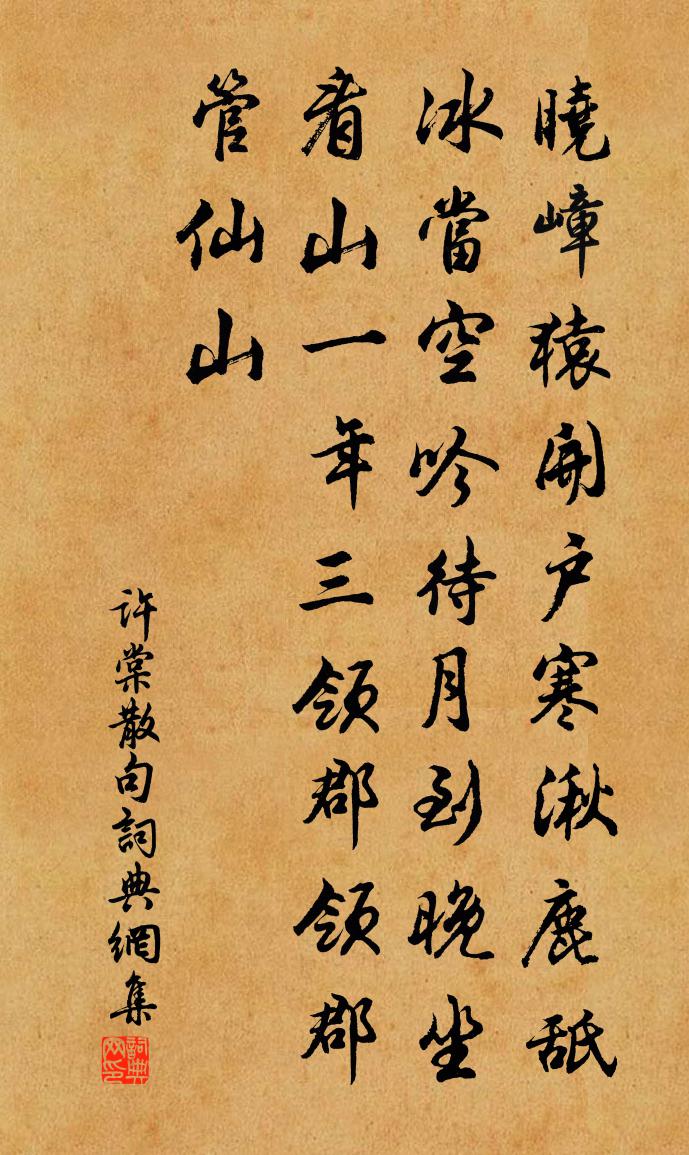 曉嶂猿開戶寒湫鹿舐
冰當空吟待月到晚坐
看山一年三領郡領郡
管仙山
许棠散句詞典網集
詞典网印